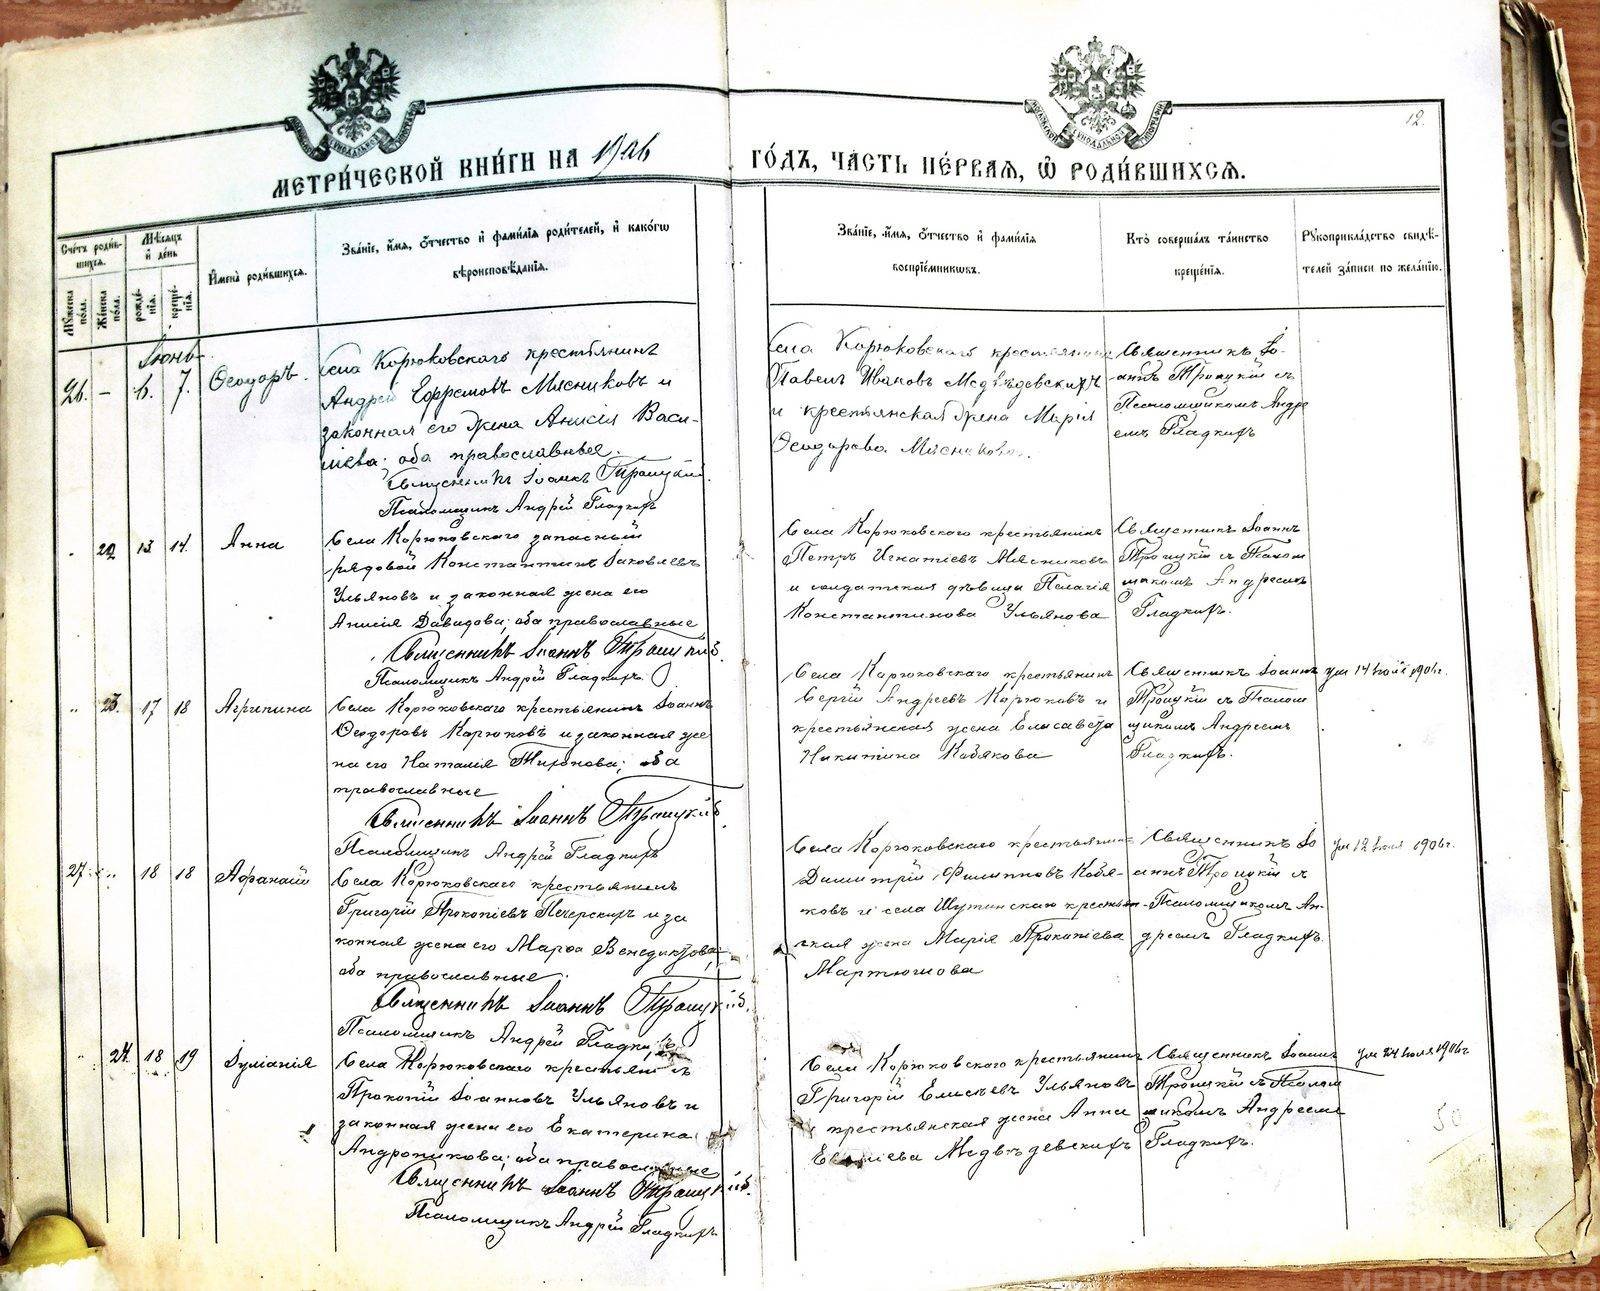 12.
МЕТРИ́ЧЕСКОЙ КНИ́ГИ НА 1906
ГО́ДЪ, ЧА́СТЬ ПЕ́РВАЯ, Ѡ РОДИ́ВШИХСЯ.
Сче́тъ роди́вшихся.
Му́жеска по́ла.
Же́нска по́ла.
Мѣ́сяцъ и́ де́нь
рожде́нїя.
креще́нїя.
И́мена̀ роди́вшихся.
Зва́нїе, и́мя, ѻ́тчество и́ фами́лїя роди́телей, и́ како́гѡ
вѣроисповѣ́данїя.
Зва́нїе, и́мя, ѻ́тчество и́ фами́лїя
воспрїе́мникѡвъ.
Кто̀ соверша́лъ та́инство
креще́нїя.
Рꙋкоприкла́дство свидѣ́-
телей за́писи по жела́нїю.
Іюнь
26. – 6. 7. Ѳеодоръ.
Села Корюковскаго крестьянинъ
Андрей Ефремовъ Мясниковъ и
законная его жена Анисія Васи-
ліева; оба православные.
Священникъ Іоаннъ Троицкій
Псаломщикъ Андрей Гладкихъ
Села Корюковскаго крестьянинъ
Павелъ Ивановъ Медвѣдевскихъ
и крестьянская жена Марія
Ѳеодорова Мясникова.
Священникъ Іо-
аннъ Троицкій съ
Псаломщикомъ Андре
емъ Гладкихъ
22 13 14. Анна
Села Корюковскаго запасный
рядовой Константинъ Іаковлевъ
Ульяновъ и законная жена его
Анисія Давидова; оба православные
Священникъ Іоаннъ Троицкій.
Псаломщикъ Андрей Гладкихъ.
Села Корюковскаго крестьянинъ
Петръ Игнатіевъ Мясниковъ
и солдатская дѣвица Пелагія
Константинова Ульянова
Священникъ Іоаннъ
Троицкій съ Псалом
щикомъ Андреемъ
Гладкихъ.
23. 17 18 Агрипина
Села Корюковскаго крестьянинъ Іоаннъ
Ѳеодоровъ Корюковъ и законная же
на его Наталія Тихонова; оба
православные
Священникъ Іоаннъ Троицкій.
Псаломщикъ Андрей Гладкихъ
Села Корюковскаго крестьянинъ
Сергій Андреевъ Корюковъ и
крестьянская жена Елисавета
Никитина Кобякова
Священникъ Іоаннъ
Троицкій съ Псалом
щикомъ Андреемъ
Гладкихъ.
ум 14 1906г.
27. 18 18 Аѳанасій
Села Корюковскаго крестьянинъ
Григорій Прокопіевъ Печерскихъ и за
конная жена его Марѳа Венедиктова;
оба православные.
Священникъ Іоаннъ Троицкій.
Псаломщикъ Андрей Гладкихъ
Села Корюковскаго крестьянинъ
Димитрій Филипповъ Кобя-
ковъ и села Шутинскаго крестьян-
ская жена Марія Прокопіева
Мартюшова
Священникъ Іо
аннъ Троицкій съ
Псаломщикомъ Ан-
дреемъ Гладкихъ.
ум 12 Іюля 1906г.
24. 18 19 Іуліанія
Села Корюковскаго крестьянинъ
Прокопій Іоанновъ Ульяновъ и
законная жена его Екатерина
Андроникова; оба православные
Священникъ Іоаннъ Троицкій.
Псаломщикъ Андрей Гладкихъ
Села Корюковскаго крестьянинъ
Григорій Елисеевъ Ульяновъ
крестьянская жена Анна
Медвѣдевскихъ
Священникъ Іоаннъ
Троицкій съ Псалом
щикомъ Андреемъ
Гладкихъ.
ум 24 Іюля 1906г
50
METRIKI GASO